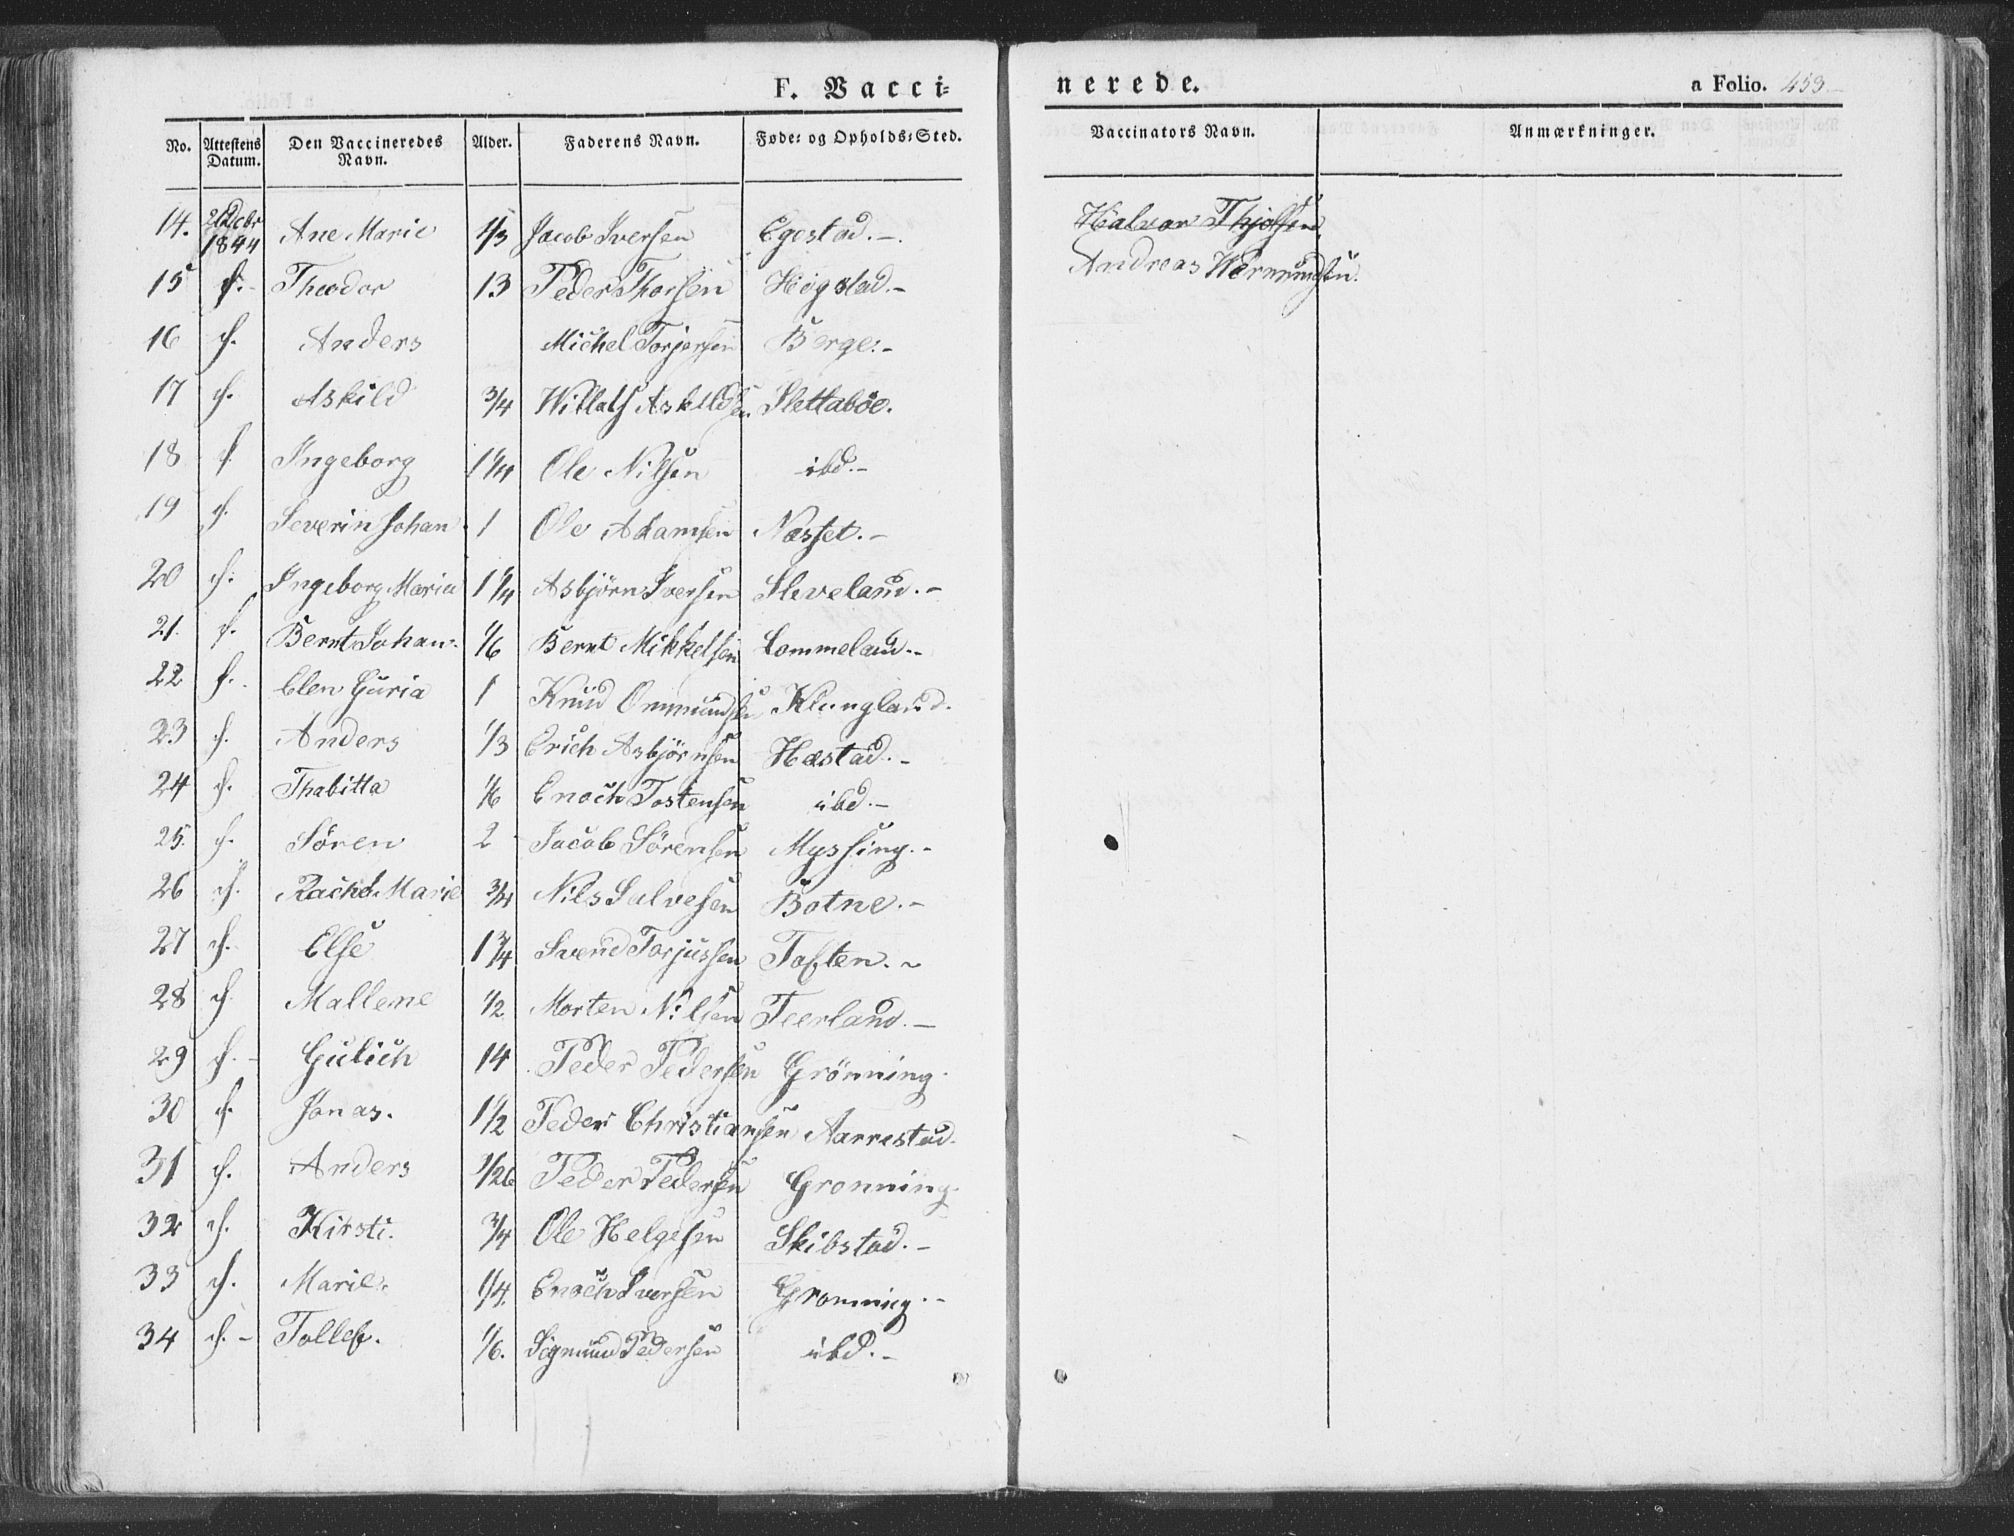 F. Vacci=
nerede.
a Folio. 453
No. Attestens Datum. Den Vaccineredes Navn. Alder. Faderens Navn. Føde= og Opholds=Sted. Vaccinators Navn. Anmærkninger.
14. Decbr 1844 Ane Marie 1/3 Jacob Iversen Egestad.-. Halvor
15 Theodor 13 Peder Thorsen Høgstad.- Andreas
16 Anders Michel Torjersen Berge.-
17 Askild 3/4 Askildsen Slettabøe.
18 Ingeborg 1 1/4 Ole Nilsen ibd.-
19 Severin Johan 1 Ole Adamsen Næsset.-
20 Ingeborg Maria 1 1/4 Asbjørn Iversen Sleveland.-
21. Bernt Johan. 1/6 Bernt Mikkelsen Lommeland.-
22 Elen Guria 1 Knud Ommundsen Klungland.
23 Anders 1/3 Erich Asbjørnsen Hæstad.-
24 Thabitta 1/6 Enoch Tostensen ibd.-
25. Søren 2 Jacob Sørensen Myssing.-
26 Rachel Marie 3/4 Nils Salvesen Botne.-
27 Else 1 3/4 Svend Torjussen Toften.-
28 Mallene 1/2 Morten Nilsen Teerland.-
29 Gulich 14 Peder Pedersen Grönning.
30 Jonas. 1 1/2 Peder Christiansen Aarrestad.
31 Anders 1/26 Peder Pedersen Gronning.
32 Kirsti. 3/4 Ole Helgesen Skibstad.-
33 Marie. 1/4. Enoch Iversen Gronning.-
34 Tollef. 1/6. Sigmund Pedersen ibd.-